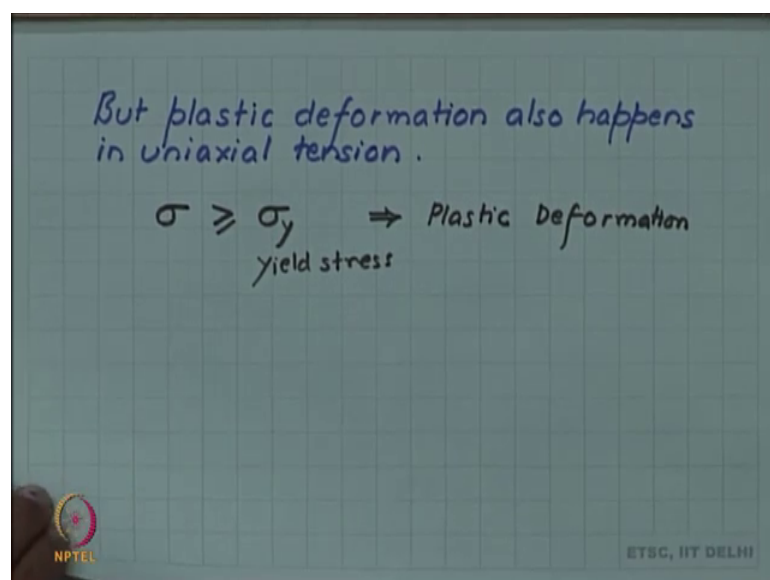 But plastic deformation also happens
in uniaxial tension.
σ ≥ σy ⇒ Plastic Deformation
yield stress
NPTEL
ETSC, IIT DELHI